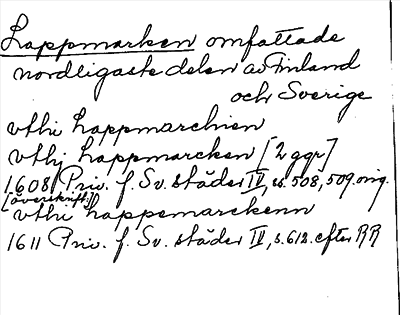 Lappmarken omfattade
nordligaste delen av Finland
och Sverige
vthi Lappmarchien
vthj Lappmarcken [2 ggr]
1608 Priv. f. Sv. städer IV, ss. 508, 509. orig.
[överskrift:]
vthi Lappemarckenn
1611 Priv. f. Sv. städer IV, s. 612. efter RR